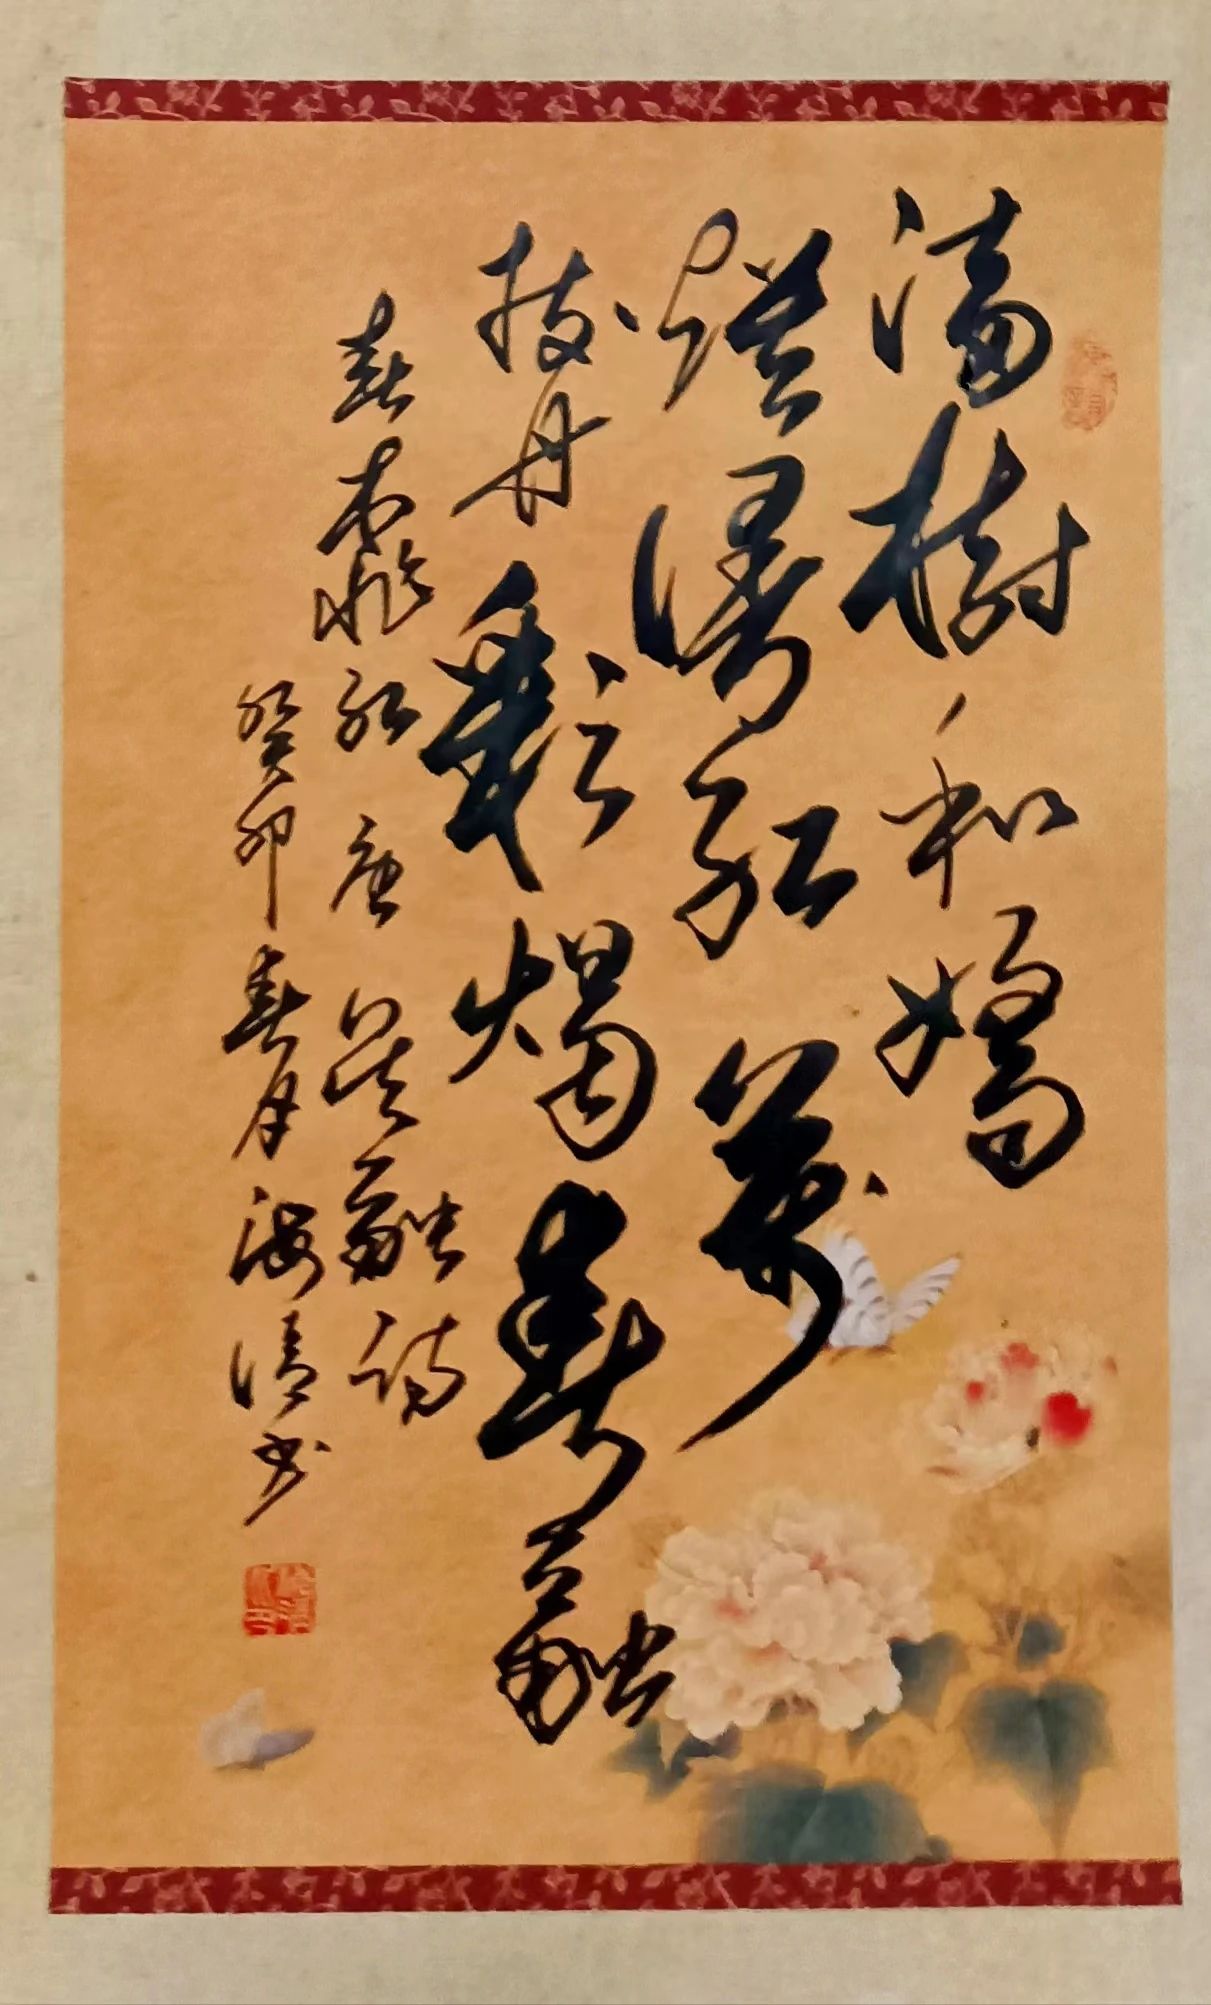 滿樹和嬌
爛漫紅萬
枝丹彩灼春融
春来桃紅唐吳融詩
癸卯春月海清书